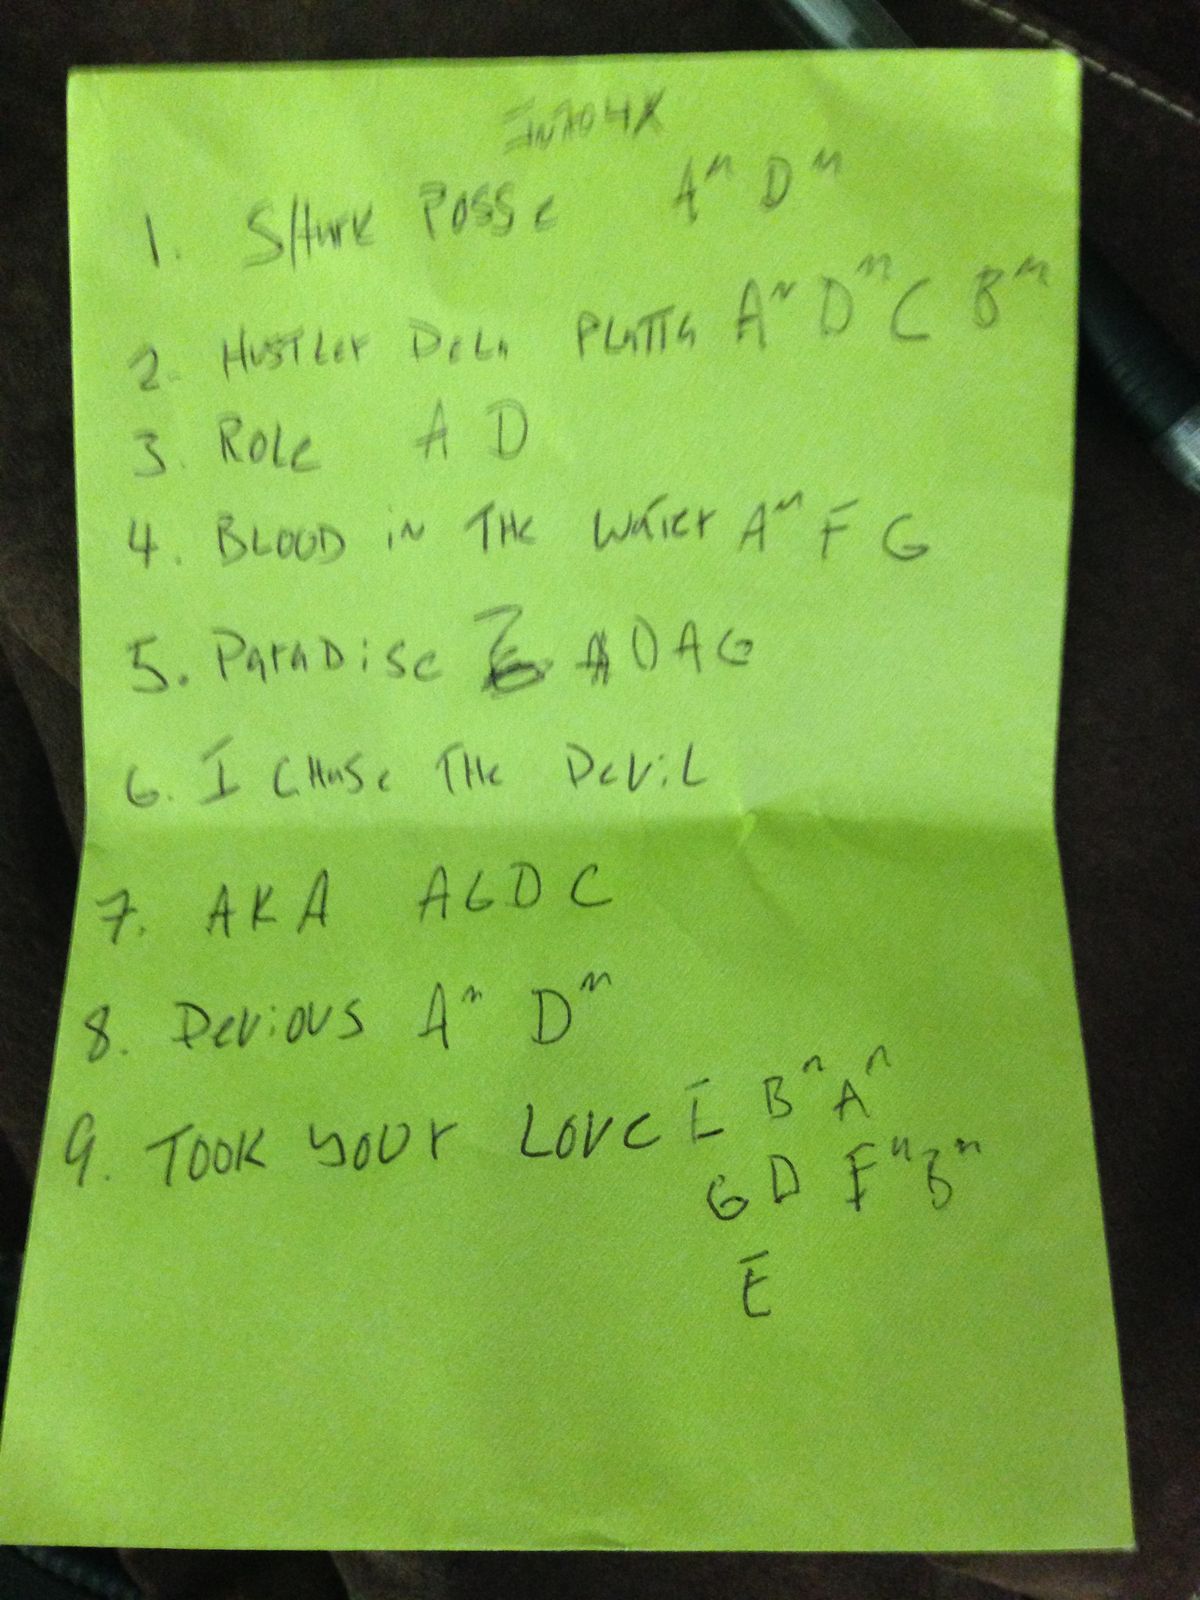 1. Shark Posse Am Dm
2. Hustler Dela Platta Am Dm C Bm
3. Role A D
4. BLOOD in THe Water Am F G
5. Paradise A D A G
6. I CHase THe Devil
7. AKA A G D C
8. Devious Am Dm
9. TOOK YOUr LOVe E Bm Am
G D Fm Bm
E